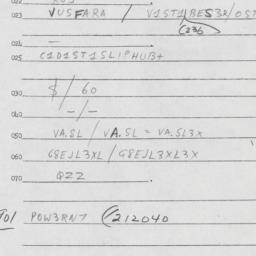 023 VUSFARA / V1ST1/BES3R/OST
(236
024 —
025 C1D1ST1SL1PHUB+
030 $ / 60
040 -/-
050 VA.SL / VA.SL = VA.SL3X
060 G8EJL3XL / G8EJL3XL3X
070 QZZ
901 POW3RN7 (212040